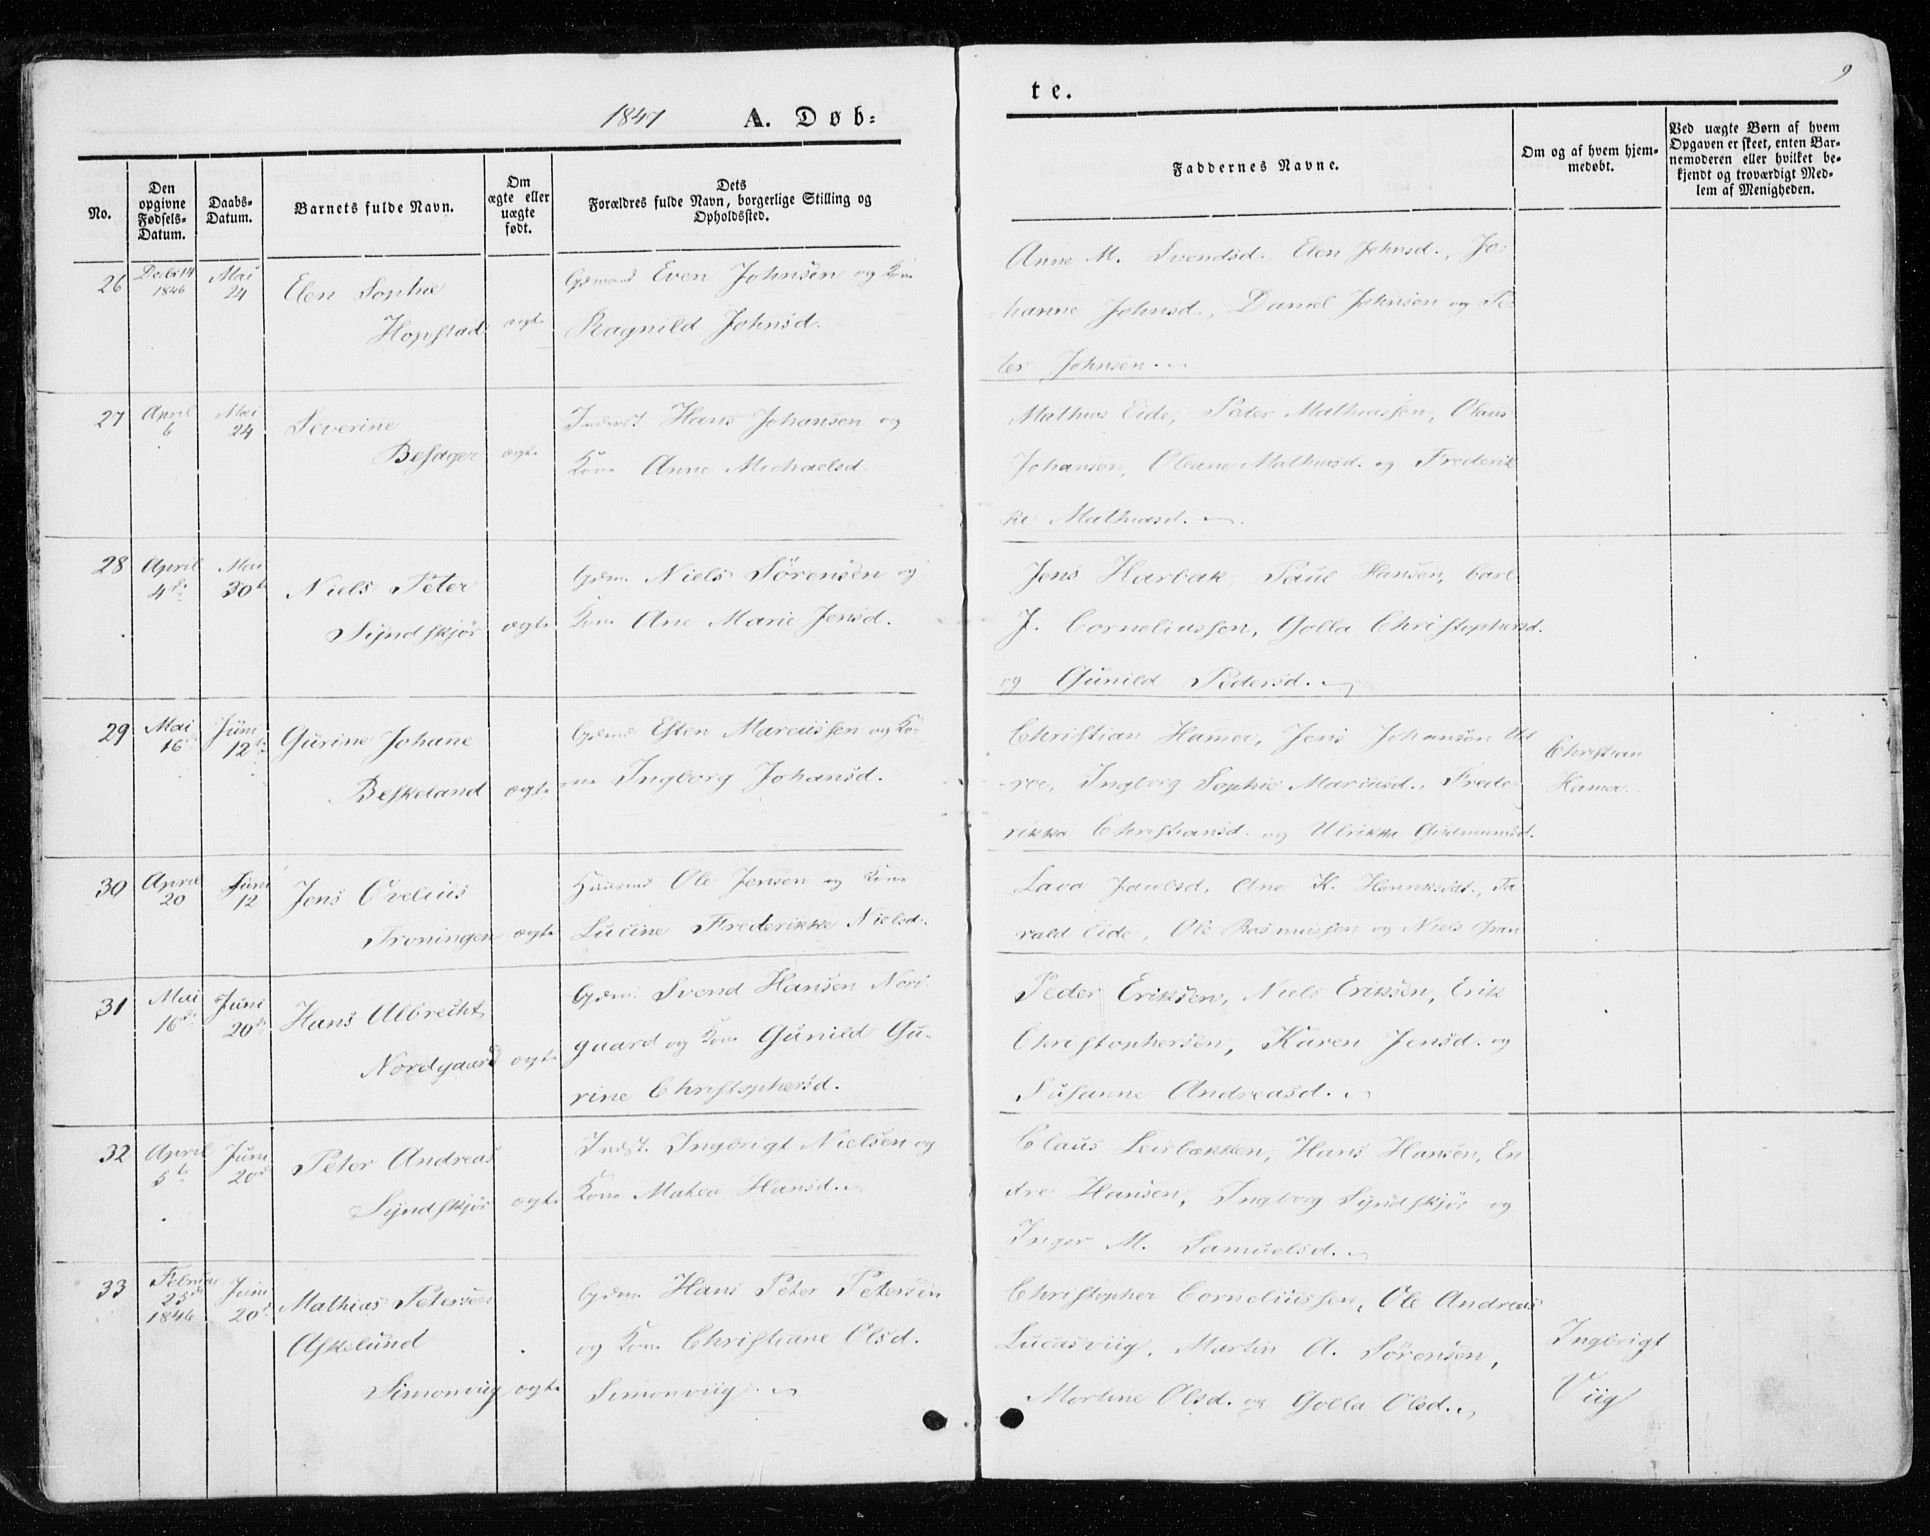 1847 A. Døb=
te. 9
No.
Den opgivne Fødsels-Datum.
Daabs-Datum.
Barnets fulde Navn.
Om ægte eller uægte født.
Dets Forældres fulde Navn, borgerlige Stilling og Opholdssted.
Faddernes Navne.
Om og af hvem hjem-medøbt.
Ved uægte Børn af hvem
Opgaven er skeet, enten Bar-
nemoderen eller hvilket be-
kjendt og troværdigt Med-
lem af Menigheden.
26 Decbr 14 1846 Mai 24 Elen Sophie
Hopstad ægte
Gdmand Even Johnsen og Kone
Ragnild Johnsd.
Anne M. Svendsd. Elen Johnsd., Jo-
hanne Johnsd., Daniel Johnsen og Pe-
ter Johnsen.
27 April 6 Mai 24 Severine
Besager ægte
Inderst Hans Johansen og
Kone Anne Michaelsd.
Mathias Eide, Peter Mathiassen, Olaus
Johansen, Oleane Mathiasd. og Frederik-
ke Mathiasd.
28 April 4de Mai 30te Niels Peter
Syndskjør ægte
Gdm. Niels Sørensen og
Kone Ane Marie Jensd.
Jens Harbak, Paul Hansen, Carl
J. Corneliussen, Golla Christophersd.
og Gunild Pedersd.
29 Mai 16 Juni 12te Gurine Johanne
Beskeland ægte
Gdmd Esten Marcussen og Ko-
ne Ingborg Johansd.
Christian Hamer, Jens Johansen Ut
roe, Ingborg Sophie Marcusd., Frede-
rikke Christiansd. og Ulrikke Gudmunsd.
Christian
Hamer.
30 April 20 Juni 12 Jens Ovelius
Troningen ægte
Huusmd Ole Jensen og Kone
Lucine Frederikke Nielsd.
Lava Paulsd, Ane K. Henriksdt., Ta
rald Eide, Ole Rasmussen og Niels Gran
31 Mai 16de Juni 20de Hans Albrecht
Nordgaard ægte
Gdm. Svend Hansen Nor
guard og Kone Gunild Gu-
rine Christophersd.
Peder Eriksen, Niels Eriksen, Erik
Christophersen, Karen Jensd. og
Susanne Andreasd.
32 April 5te Juni 20de Peter Andreas
Syndskjør ægte
Indst. Ingbrigt Nielsen og
Kone Matea Hansd.
Claus Leirbækken, Hans Hansen, En
dre Hansen, Ingborg Syndskjør og
Inger M. Samuelsd.
33 Februar 25de 1846 Juni 20de Mathias Petersen
Askelund
Simonviig ægte
Gdm. Hans Peter Petersen
og Kone Christiane Olsd.
Simonviig.
Christopher Corneliussen, Ole Andreas
Lucasviig, Martin A. Sørensen,
Martine Olsd. og Golla Olsd.
Ingbrigt
Viig